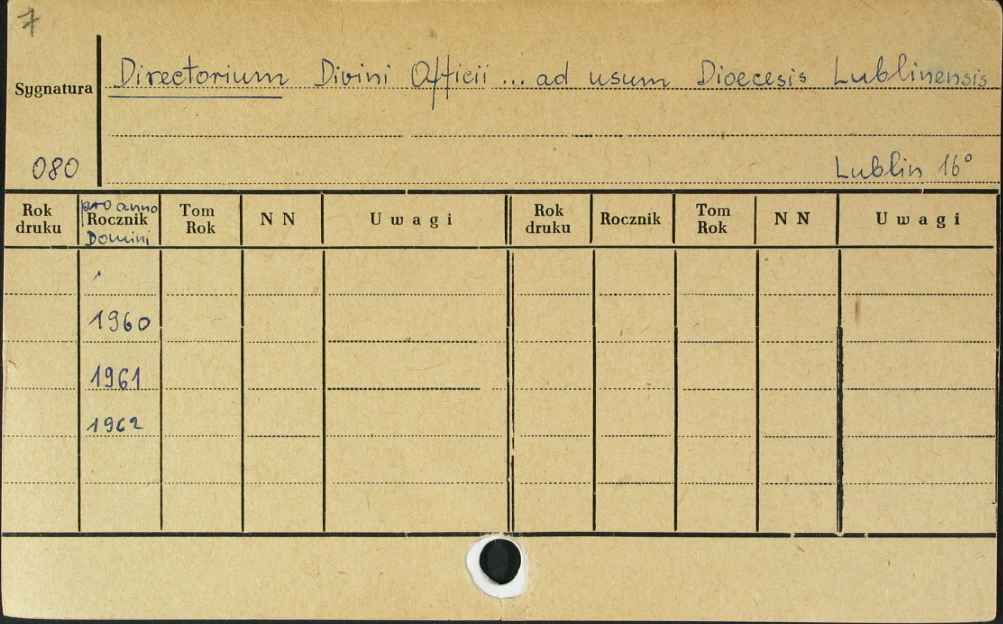 7
Sygnatura
Directorium Divini Officii ... ad usum Dioecesis Lublinensis
080
Lublin 16°
Rok druku
pro anno Rocznik Domini
Tom Rok
N N
Uwagi
Rok druku
Rocznik
Tom Rok
N N
Uwagi
1960
1961
1962